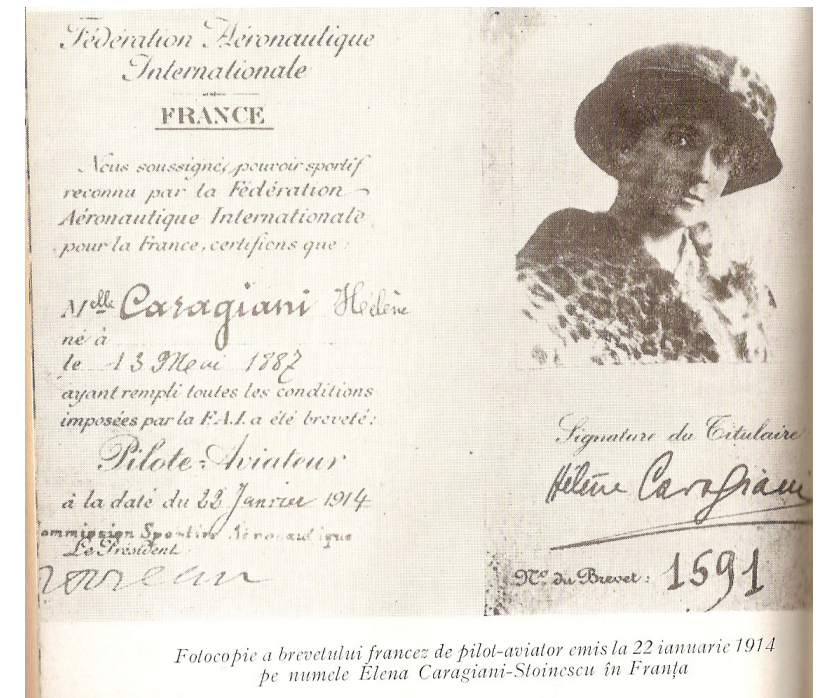 Fédération Aéronautique
Internationale
FRANCE
Nous soussignés, pouvoir sportif
reconnu par la Fédération
Aéronautique Internationale
pour la France, certifions que :
Melle Caragiani Hélène
né à
le 13 Mai 1887
ayant rempli toutes les conditions
imposées par la F.A.I. a été breveté :
Pilote-Aviateur
à la date du 22 Janvier 1914
ommission Sportive Aéronautique
Le Président
Signature du Titulaire
Hélène Caragiani
No du Brevet : 1591
Fotocopie a brevetului francez de pilot-aviator emis la 22 ianuarie 1914
pe numele Elena Caragiani-Stoinescu în Franța